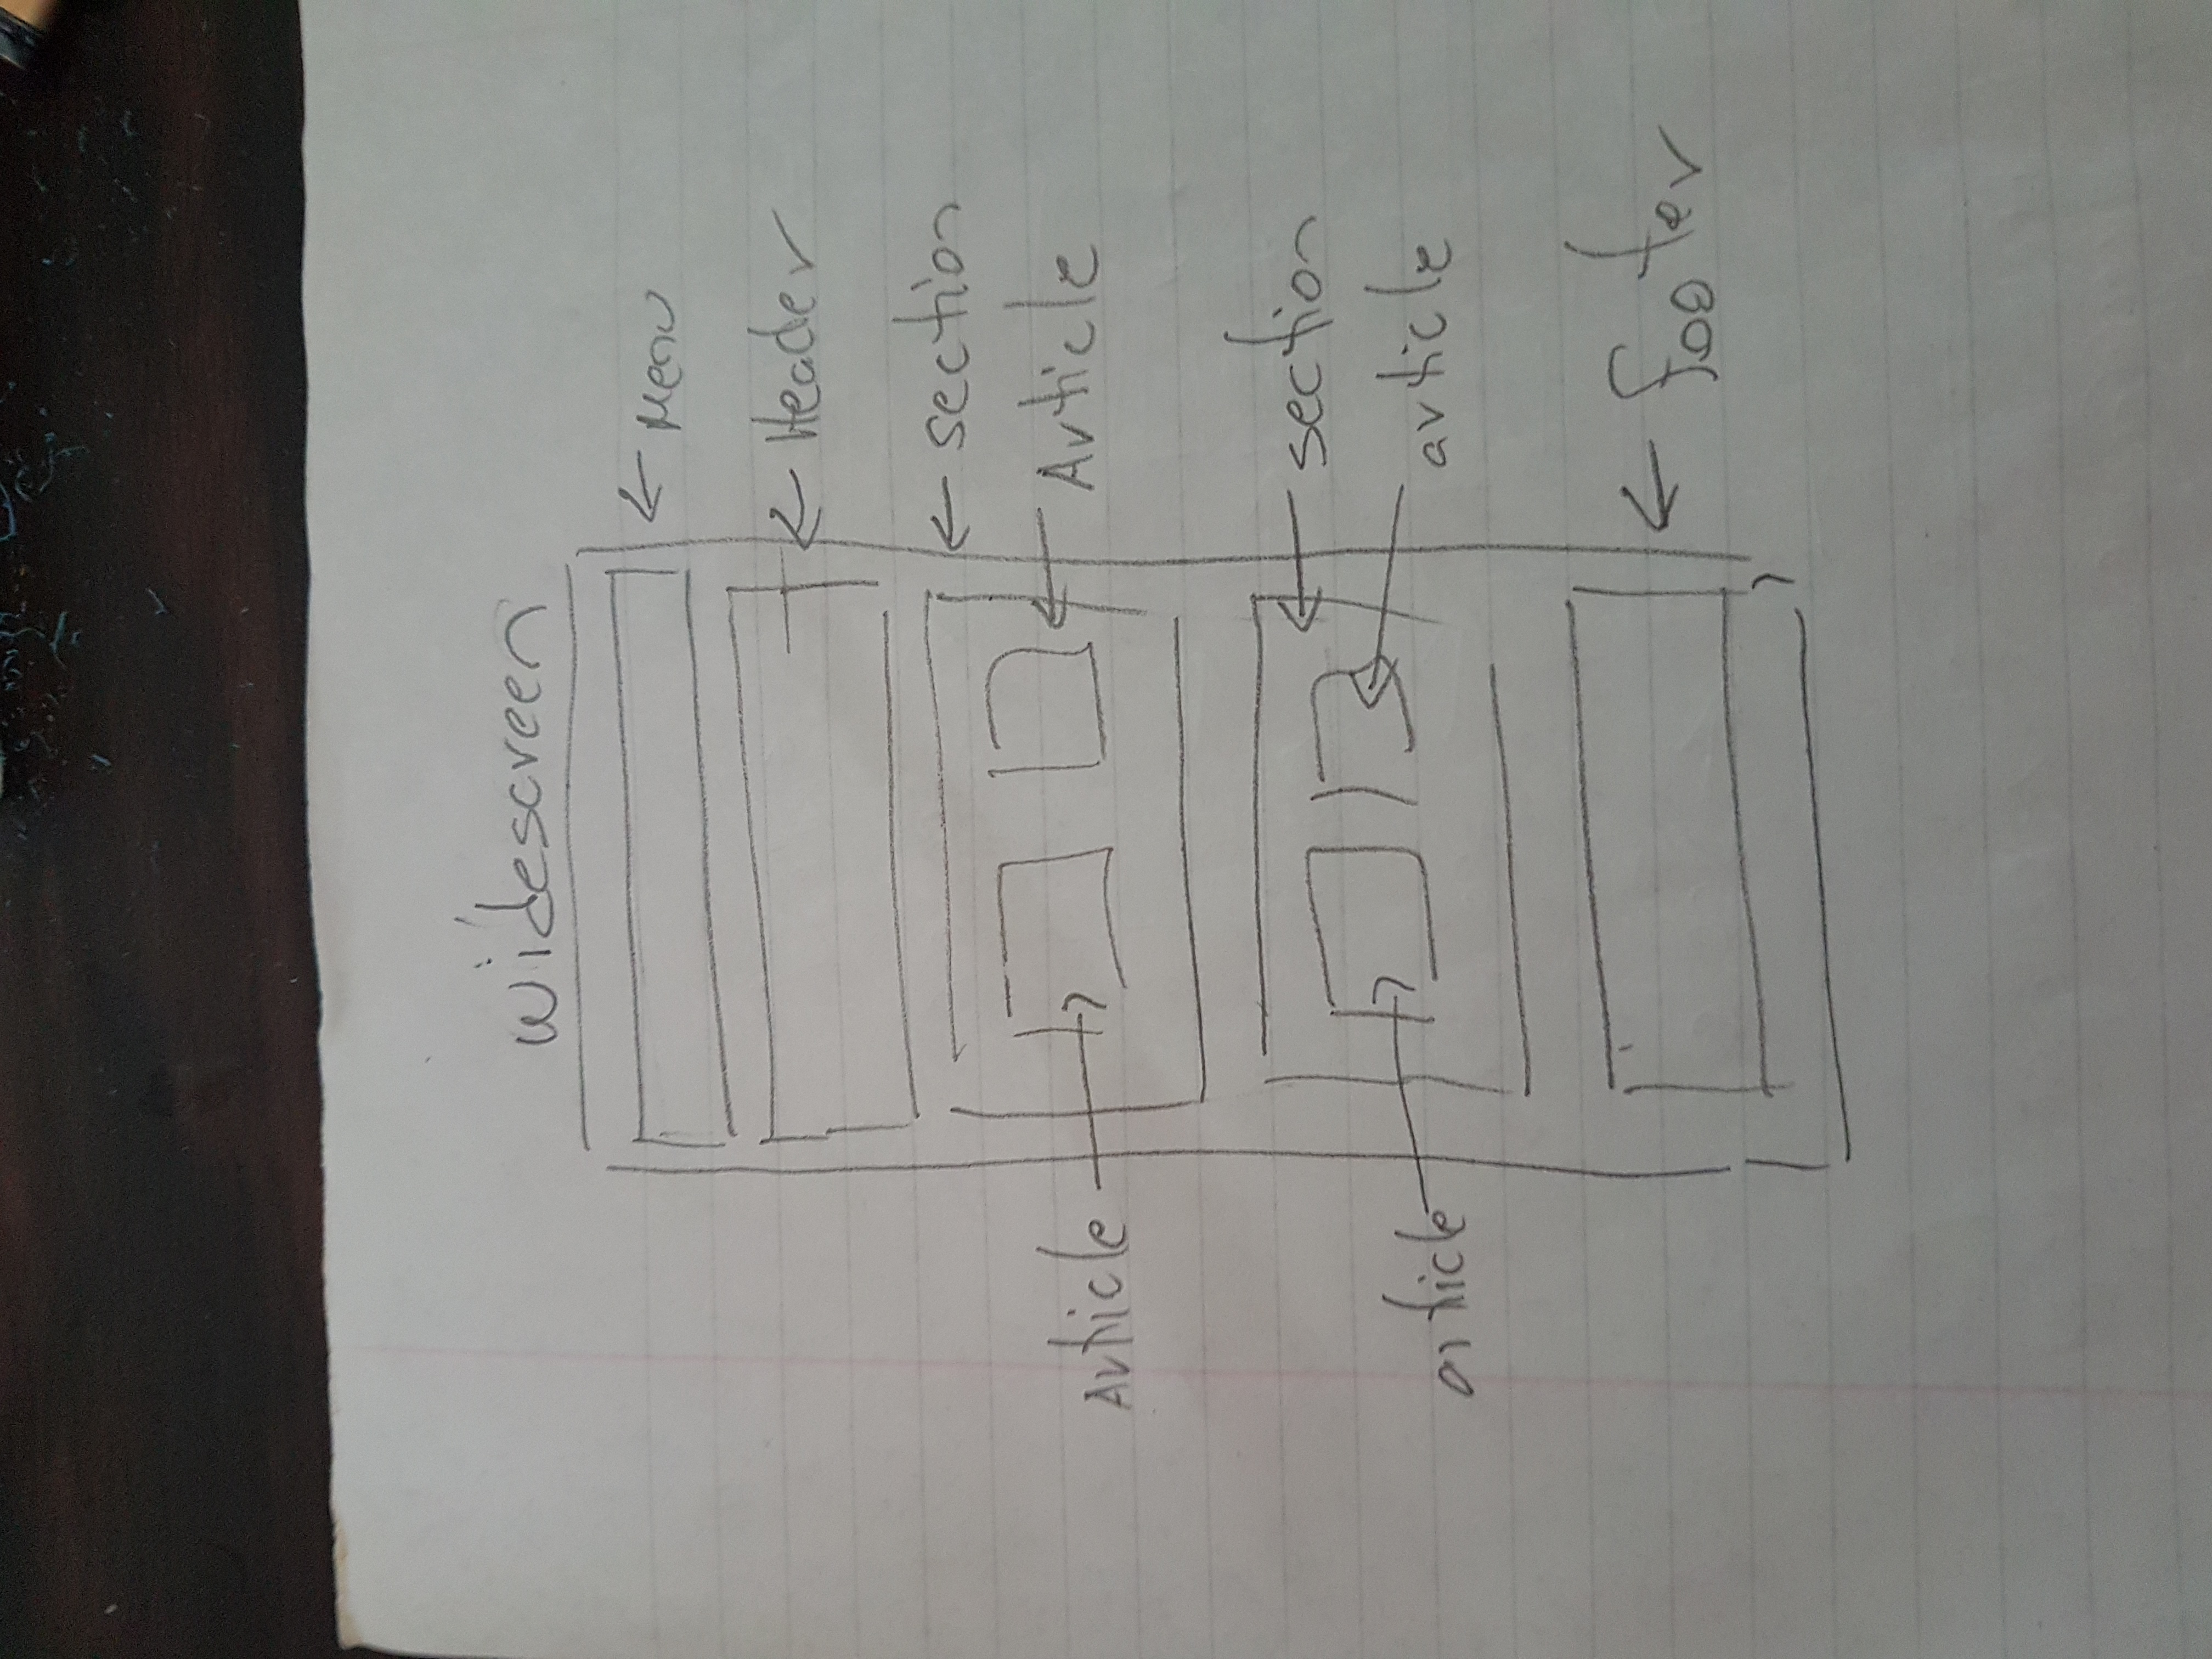 widescreen
Menu
Header
section
Article
Article
section
article
article
footer